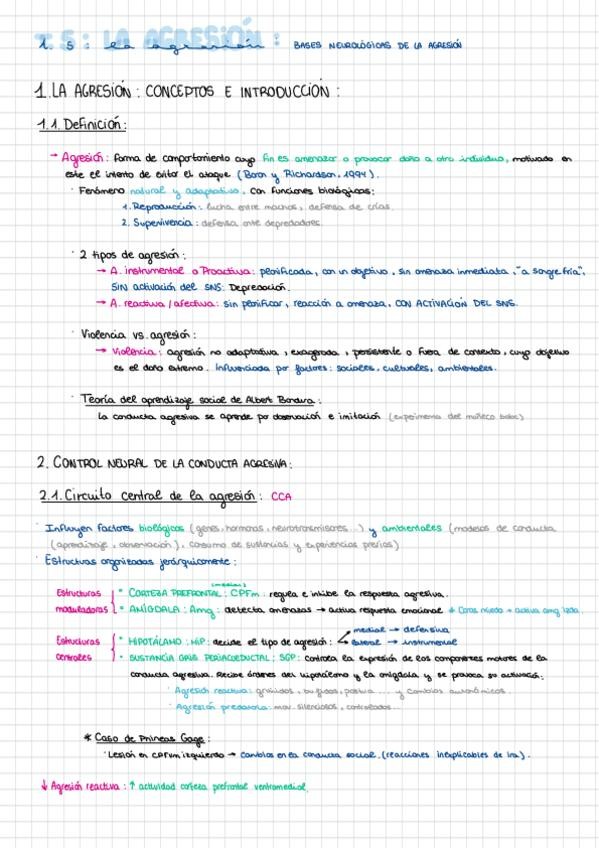 T.5: LA AGRESIÓN: BASES NEUROLÓGICAS DE LA AGRESIÓN
1. LA AGRESIÓN: CONCEPTOS E INTRODUCCIÓN:
1.1. Definición:
→ Agresión: Forma de comportamiento cuyo fin es amenazar o provocar daño a otro individuo, motivado en
este el intento de evitar el ataque (Baron y Richardson, 1994).
· Fenómeno natural y adaptativo, con funciones biológicas:
1. Reproducción: lucha entre machos, defensa de crías.
2. Supervivencia: defensa ante depredadores.
· 2 tipos de agresión:
→ A. instrumental o Proactiva: planificada, con un objetivo, sin amenaza inmediata, "a sangre fría",
SIN activación del SNS. Depredación.
→ A. reactiva / afectiva: sin planificar, reacción a amenaza, CON ACTIVACIÓN DEL SNS.
· Violencia vs. agresión:
→ Violencia: agresión no adaptativa, exagerada, persistente o fuera de contexto, cuyo objetivo
es el daño extremo. Influenciada por factores: sociales, culturales, ambientales.
· Teoría del aprendizaje social de Albert Bandura:
La conducta agresiva se aprende por observación e imitación (experimento del muñeco bobo)
2. CONTROL NEURAL DE LA CONDUCTA AGRESIVA:
2.1. Circuito central de la agresión: CCA
· Influyen factores biológicos (genes, hormonas, neurotransmisores...) y ambientales (modelos de conducta
(aprendizaje, observación), consumo de sustancias y experiencias previas)
· Estructuras organizadas jerárquicamente:
(medial)
Estructuras moduladoras
• CORTEZA PREFRONTAL: CPFm: regula e inhibe la respuesta agresiva.
• AMÍGDALA: Amg: detecta amenazas → activa respuesta emocional * Caras miedo → activa amg izda.
Estructuras centrales
• HIPOTÁLAMO: HIP: decide el tipo de agresión: medial → defensiva
lateral → instrumental
• SUSTANCIA GRIS PERIACUEDUCTAL: SGP: Controla la expresión de los componentes motores de la
conducta agresiva. Recibe órdenes del hipotálamo y la amígdala y se provoca su activación:
· Agresión reactiva: gruñidos, bufidos, postura ... y cambios autonómicos.
· Agresión predatoria: mov. silenciosos, controlados...
* Caso de Phineas Gage:
· Lesión en CPFvm izquierdo → cambios en la conducta social. (reacciones inexplicables de ira).
↓ Agresión reactiva: ↑ actividad corteza prefrontal ventromedial.